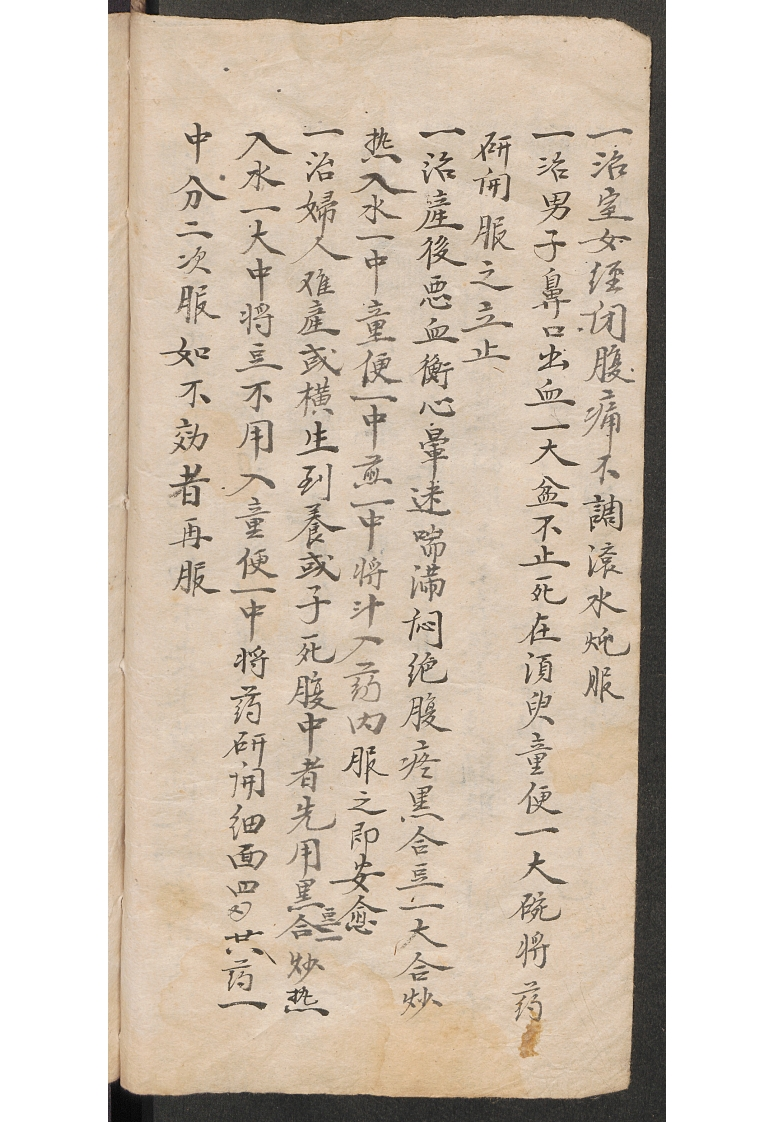 一治室女经闭腹痛不調滚水炖服
一治男子鼻口出血一大盆不止死在須臾童便一大碗将药
研開服之立止
一治產後惡血衝心暈迷喘满悶绝腹疼黑合豆一大合炒
热入水一中童便一中煎一中将汁入药内服之即安愈
一治婦人难產或横生到養或子死腹中者先用黑合豆一炒热
入水一大中将豆不用入童便一中将药研開细面四廿六药一
中分二次服如不効者再服